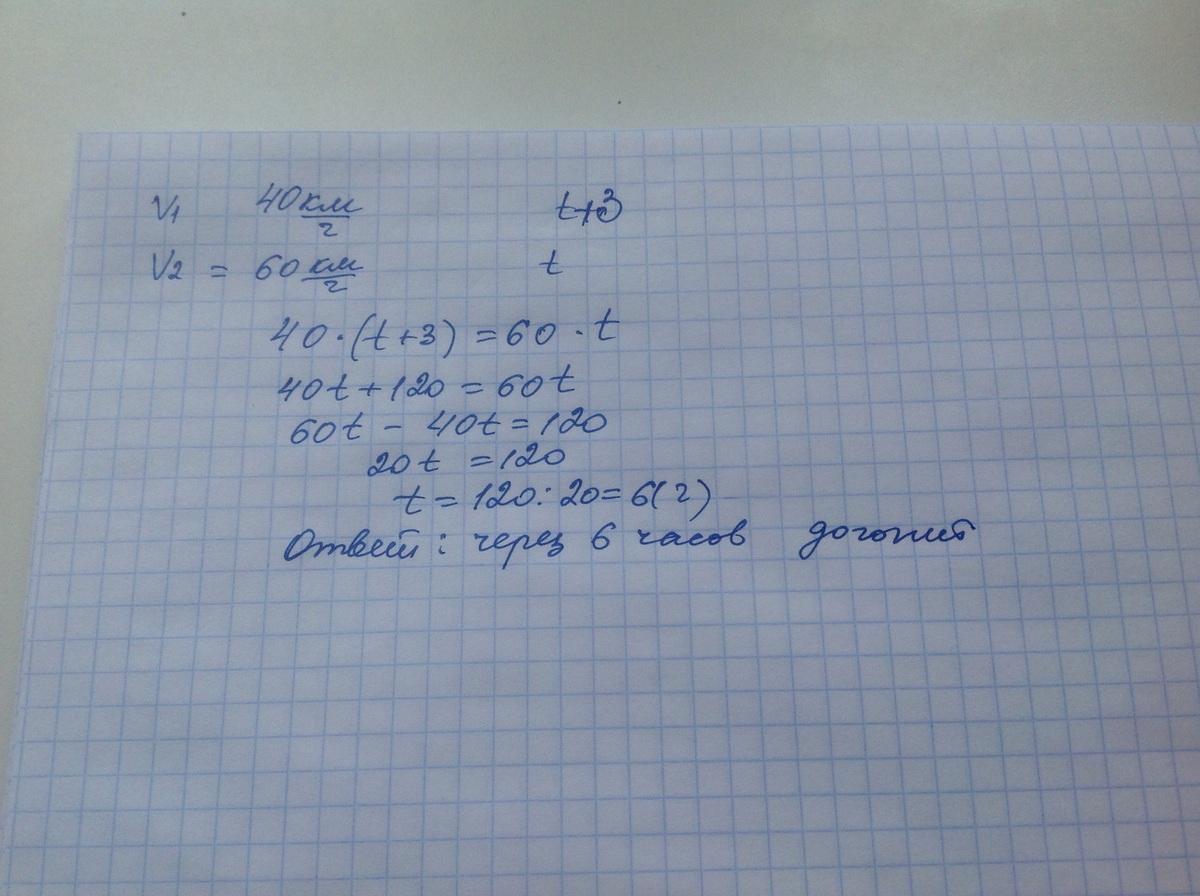 V1 40 км/ч t+3
V2 = 60 км/ч t
40·(t+3) = 60·t
40t + 120 = 60t
60t - 40t = 120
20t = 120
t = 120:20 = 6(ч)
Ответ: через 6 часов догонит